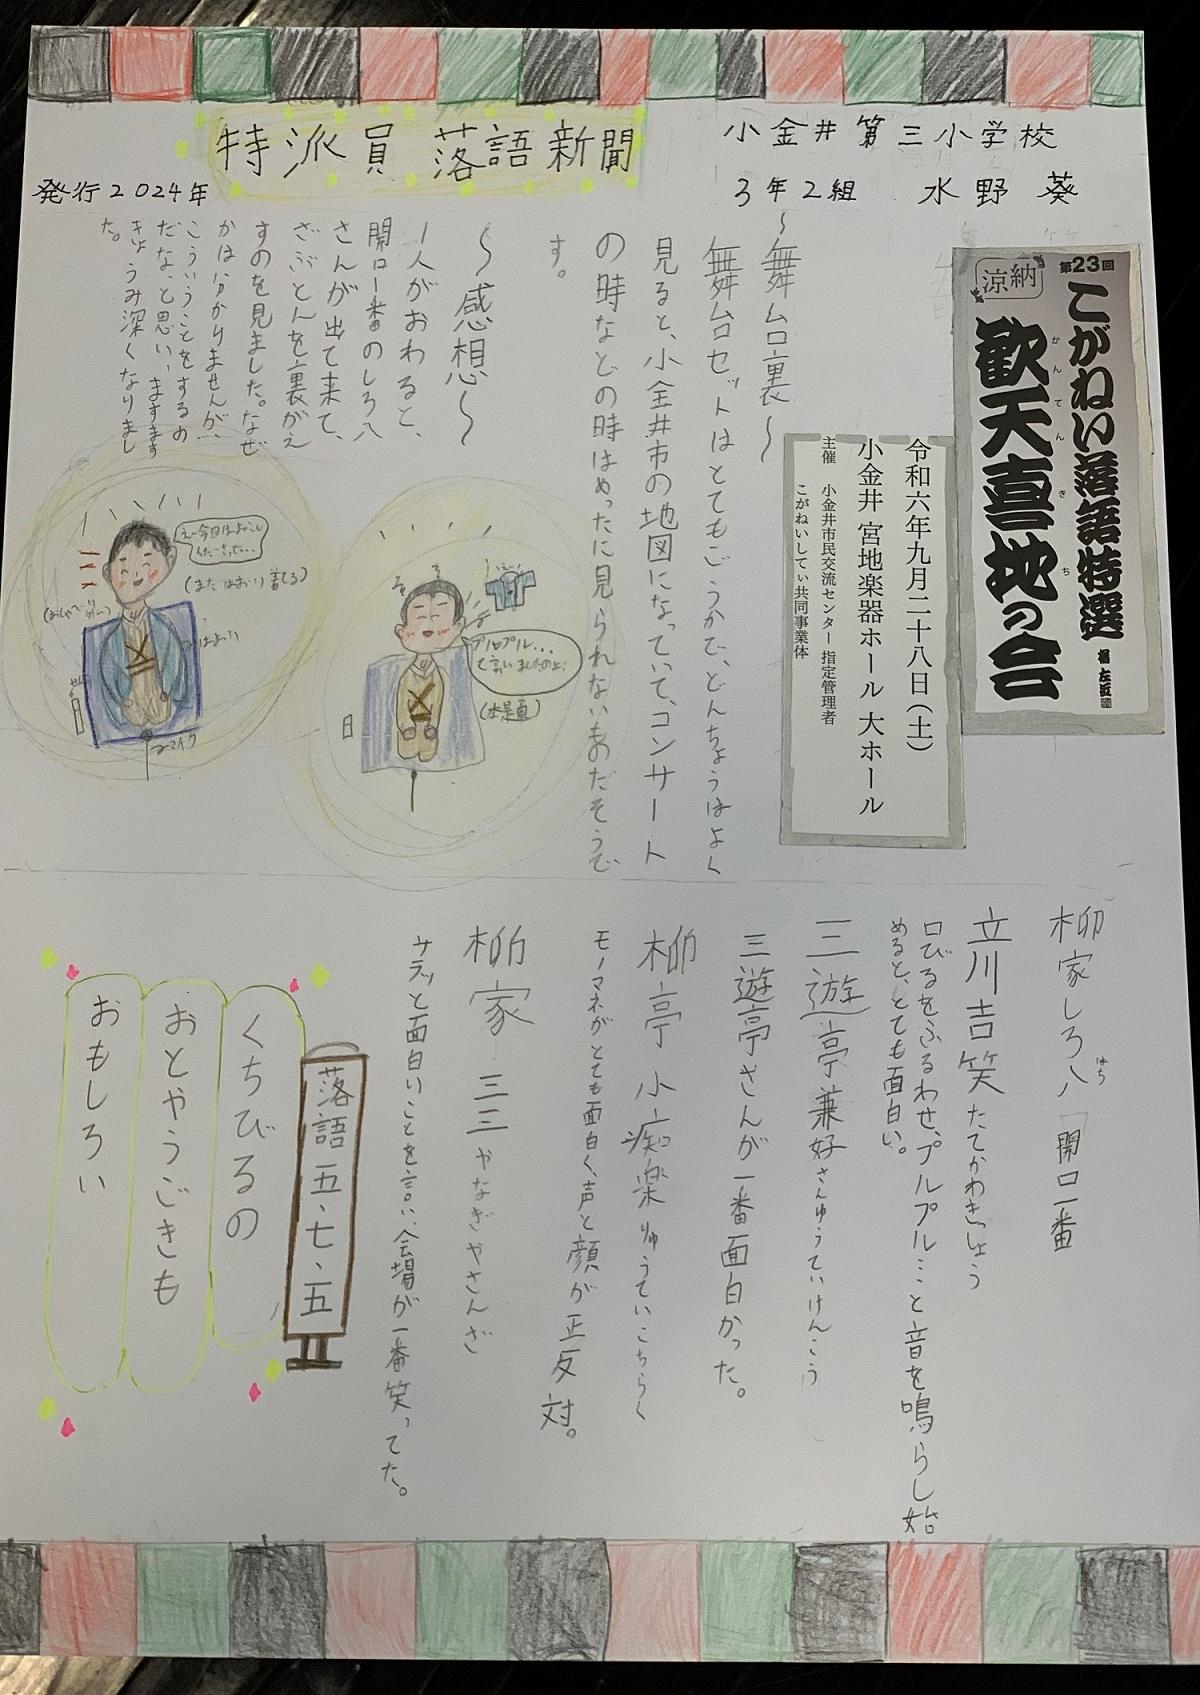 特派員 落語新聞
小金井第三小学校
3年2組 水野 葵
発行2024年
第23回
納涼
こがねい落語特選
歓天喜地の会
かんてんきち
令和六年九月二十八日(土)
小金井 宮地楽器ホール 大ホール
主催 小金井市民交流センター 指定管理者
こがねいしてぃ共同事業体
~舞台裏~
舞台セットはとてもごうかで、どんちょうはよく
見ると、小金井市の地図になっていて、コンサート
の時などの時はめったに見られないものだそうで
す。
~感想~
一人がおわると、
開口一番のしろ八
さんが出て来て、
ざぶとんを裏がえ
すのを見ました。なぜ
かはわかりませんが、
こういうことをするの
だな、と思い、ますます
きょうみ深くなりまし
た。
えー今日はよこし
くださって…
(まだはおり着てる)
はおり
せんす
マイク
プルプル…
て言いましたのよ!
柳家しろ八 「開口一番
はち
立川吉笑 たてかわきっしょう
口びるをふるわせ、プルプル…と音を鳴らし始
めると、とても面白い。
三遊亭兼好 さんゆうていけんこう
三遊亭さんが一番面白かった。
柳亭 小痴楽 りゅうていこちらく
モノマネがとても面白く、声と顔が正反対。
柳家 三三 やなぎやさんざ
サラッと面白いことを言い、会場が一番笑ってた。
落語 五、七、五
くちびるの
おとやうごきも
おもしろい